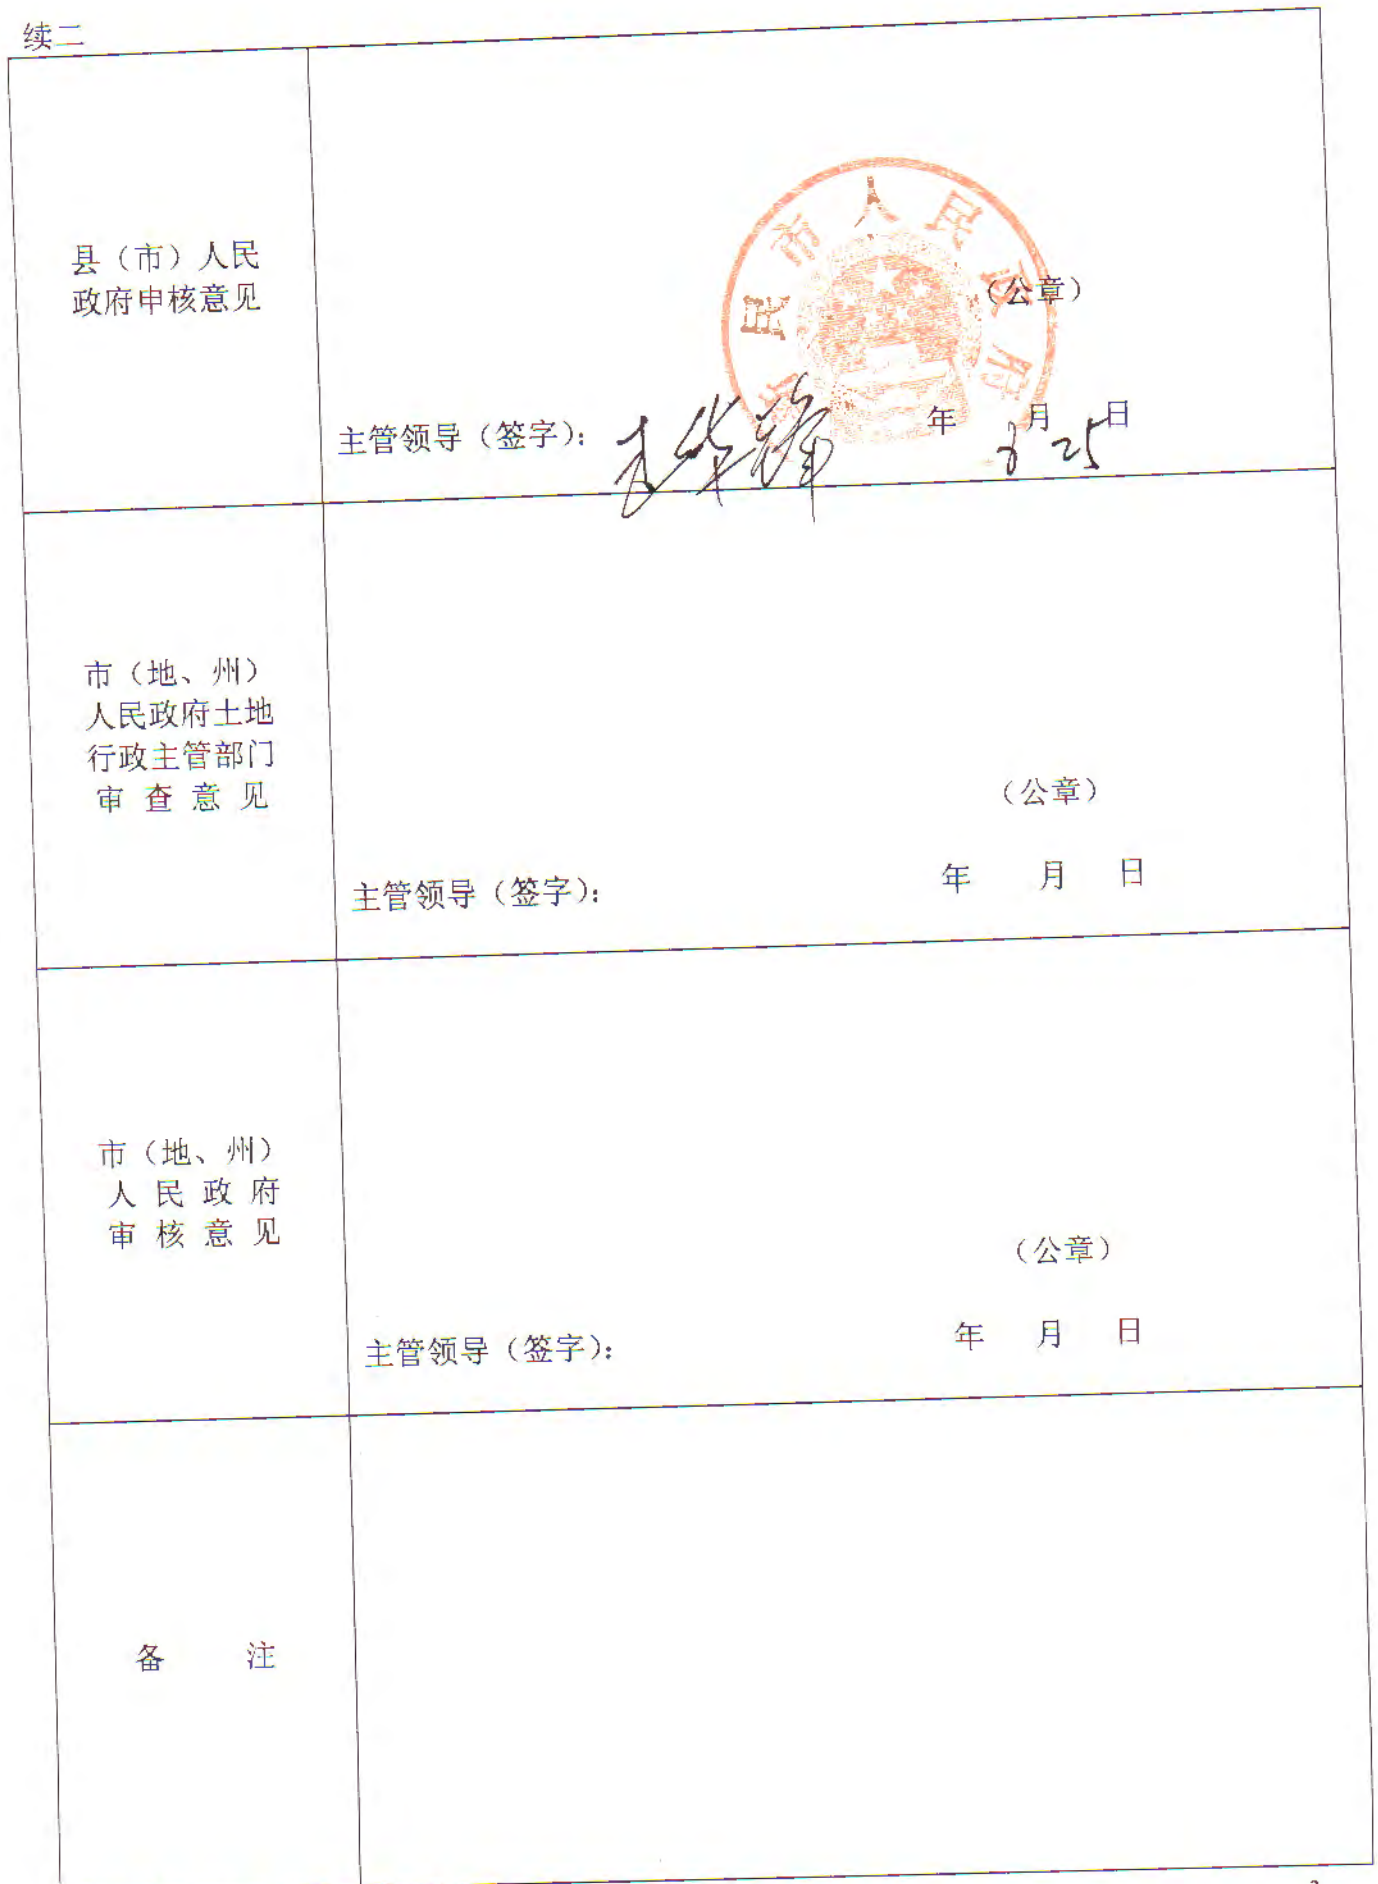 续二
县（市）人民
政府审核意见
民市人民政府
（公章）
主管领导（签字）： 年 月 日
25
市（地、州）
人民政府土地
行政主管部门
审查意见
（公章）
主管领导（签字）： 年 月 日
市（地、州）
人民政府
审核意见
（公章）
主管领导（签字）： 年 月 日
备 注